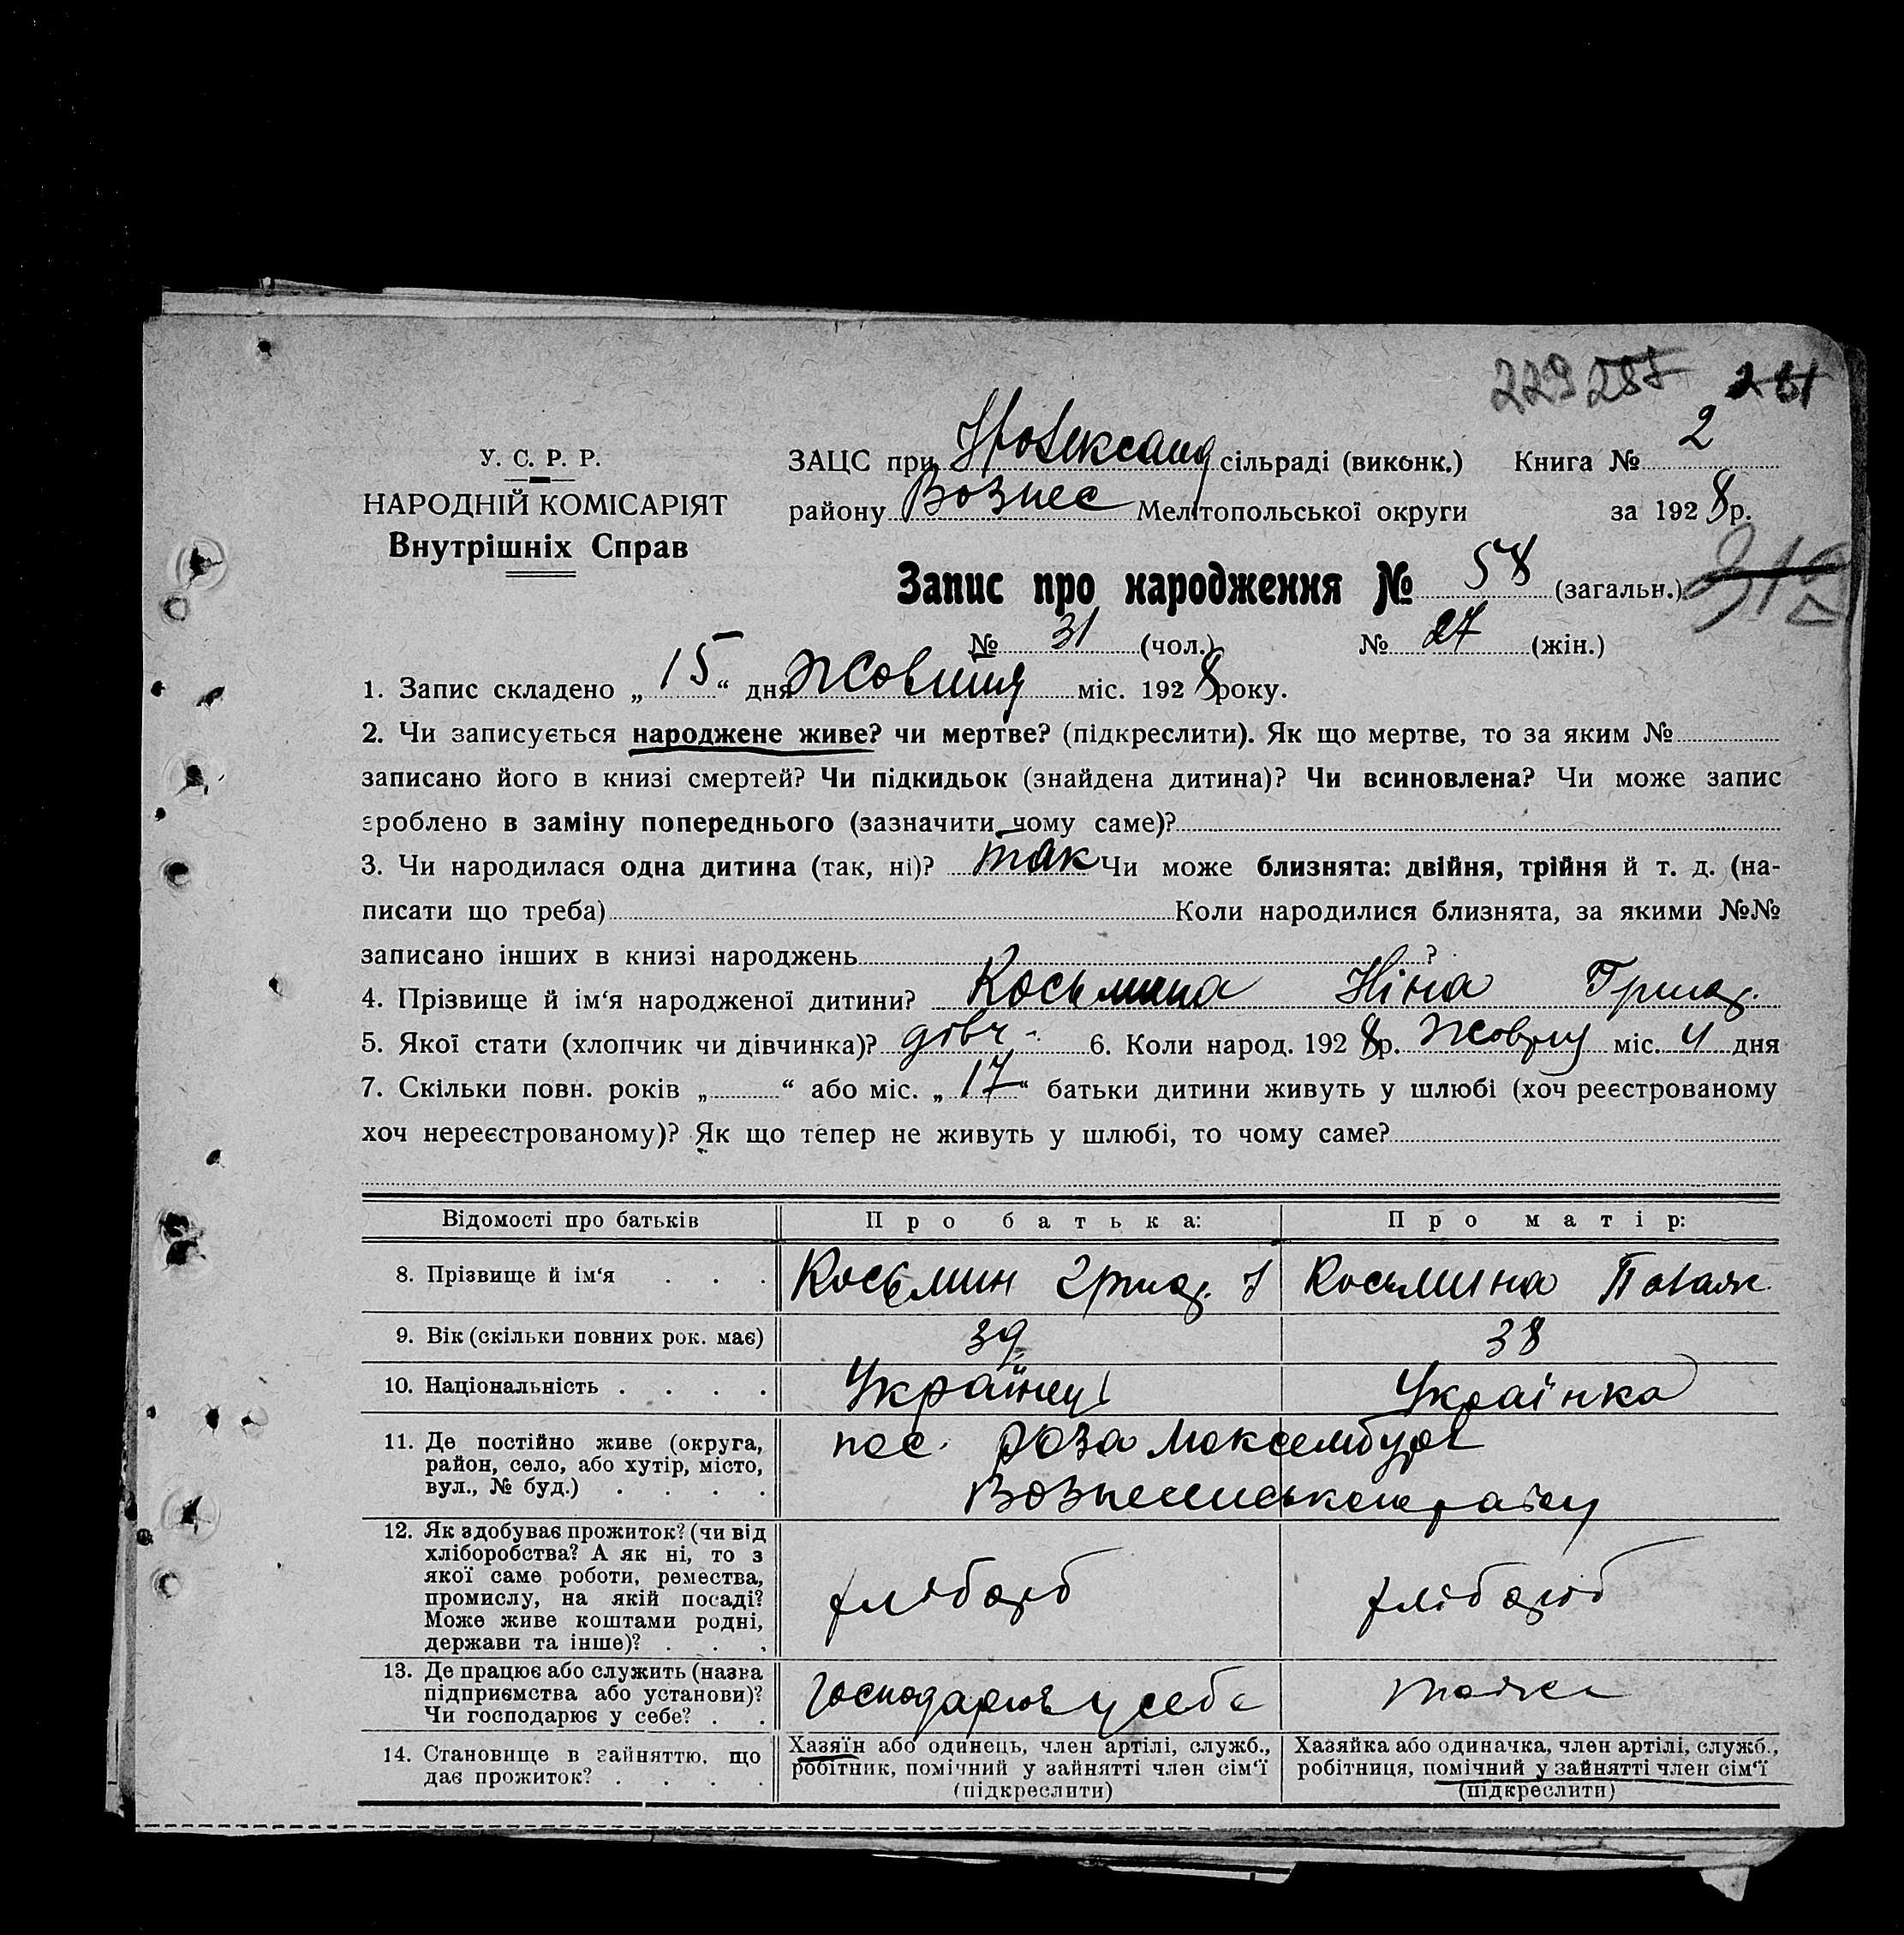 229 287 281
У. С. Р. Р.
НАРОДНІЙ КОМІСАРІЯТ
Внутрішніх Справ
ЗАЦС при сільраді (виконк.) Книга № 2
району Вознес Мелітопольської округи за 1928 р.
Запис про народження № 58 (загальн.)
№ 31 (чол.) № 27 (жін.)
1. Запис складено „ 15 “ дня Жовтня міс. 1928 року.
2. Чи записується народжене живе? чи мертве? (підкреслити). Як що мертве, то за яким №
записано його в книзі смертей? Чи підкидьок (знайдена дитина)? Чи всиновлена? Чи може запис
зроблено в заміну попереднього (зазначити чому саме)?
3. Чи народилася одна дитина (так, ні)? так Чи може близнята: двійня, трійня й т. д. (на-
писати що треба) Коли народилися близнята, за якими №№
записано інших в книзі народжень ?
4. Прізвище й ім‘я народженої дитини? Косьмина Ніна Григ.
5. Якої стати (хлопчик чи дівчинка)? дівч. 6. Коли народ. 1928 р. Жовтн міс. 4 дня
7. Скільки повн. років „ “ або міс. „ 17 “ батьки дитини живуть у шлюбі (хоч реєстрованому
хоч нереєстрованому)? Як що тепер не живуть у шлюбі, то чому саме?
Відомості про батьків Про батька: Про матір:
8. Прізвище й ім‘я . . . Косьмин Григ. Косьмина
9. Вік (скільки повних рок. має) 39 38
10. Національність . . . . Українець Українка
11. Де постійно живе (округа,
район, село, або хутір, місто,
вул., № буд.) . . . .
пос. Роза Люксембург
Вознесенського району
12. Як здобуває прожиток? (чи від
хліборобства? А як ні, то з
якої саме роботи, ремества,
промислу, на якій посаді?
Може живе коштами родні,
держави та інше)? . . .
хлібороб хлібороб
13. Де працює або служить (назва
підприємства або установи)?
Чи господарює у себе? . .
господарює у себе також
14. Становище в зайняттю, що
дає прожиток? . . . .
Хазяїн або одинець, член артілі, служб.,
робітник, помічний у зайнятті член сім‘ї
(підкреслити)
Хазяйка або одиначка, член артілі, служб.,
робітниця, помічний у зайнятті член сім‘ї
(підкреслити)